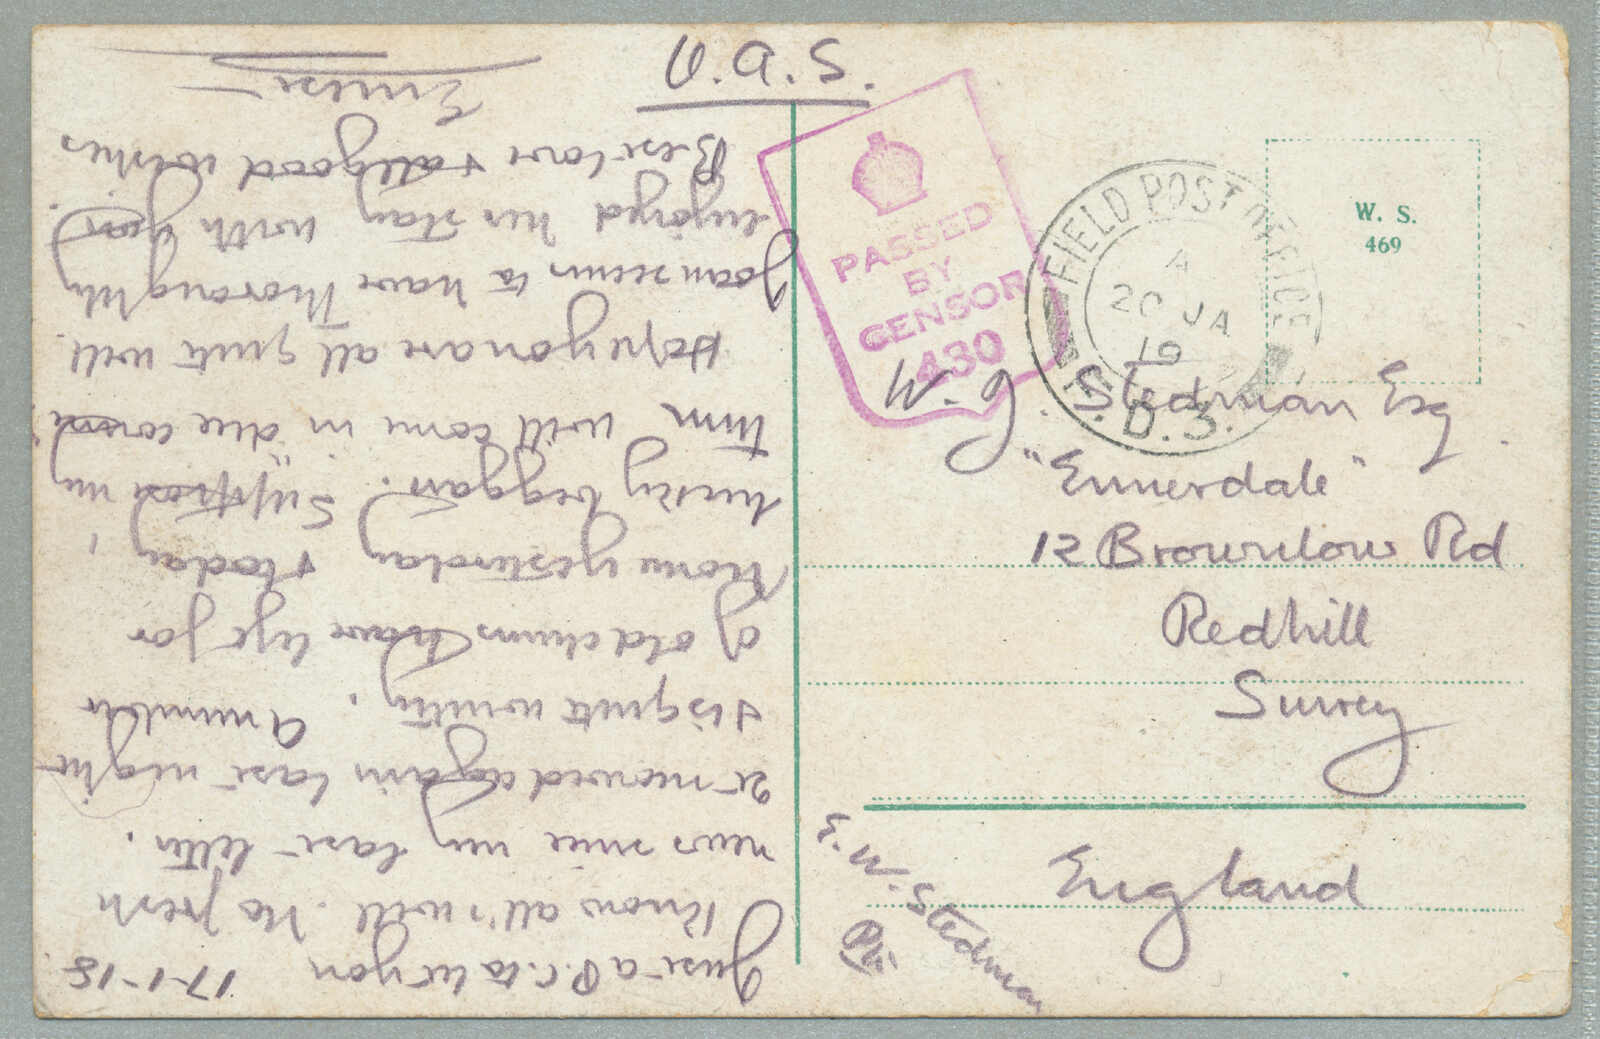 O.A.S.
PASSED
BY
CENSOR
430
FIELD POST OFFICE
A
20 JA
D.3.
W. S.
469
W. J. Stedman Esq
"Ennerdale"
12 Brownlow Rd
Redhill
Surrey
England
E. W. Stedman
17-1-18
Just a P.C. to let you
know all's well. No fresh
news since my last letter.
moved again last night
& is quite wintry. A number
of old chums have left for
Home yesterday & today,
lucky beggars. Suppose my
turn will come in due course.
Hope you are all quite well.
Joan seems to have thoroughly
enjoyed her stay with you.
Best love & all good wishes
Ernest